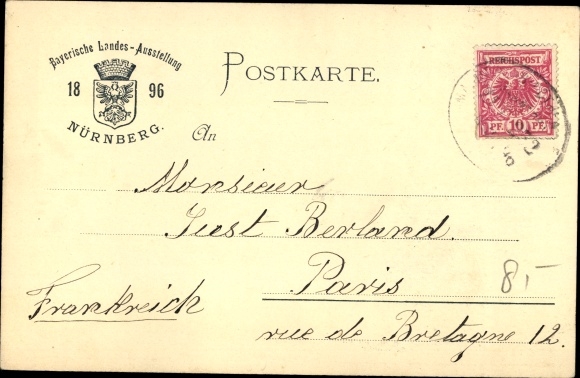 Bayerische Landes-Ausstellung
18 96
NÜRNBERG.
POSTKARTE.
REICHSPOST
PF. 10 PF.
An
Monsieur
Just Berland.
Paris
8.-
Frankreich
rue de Bretagne 12.